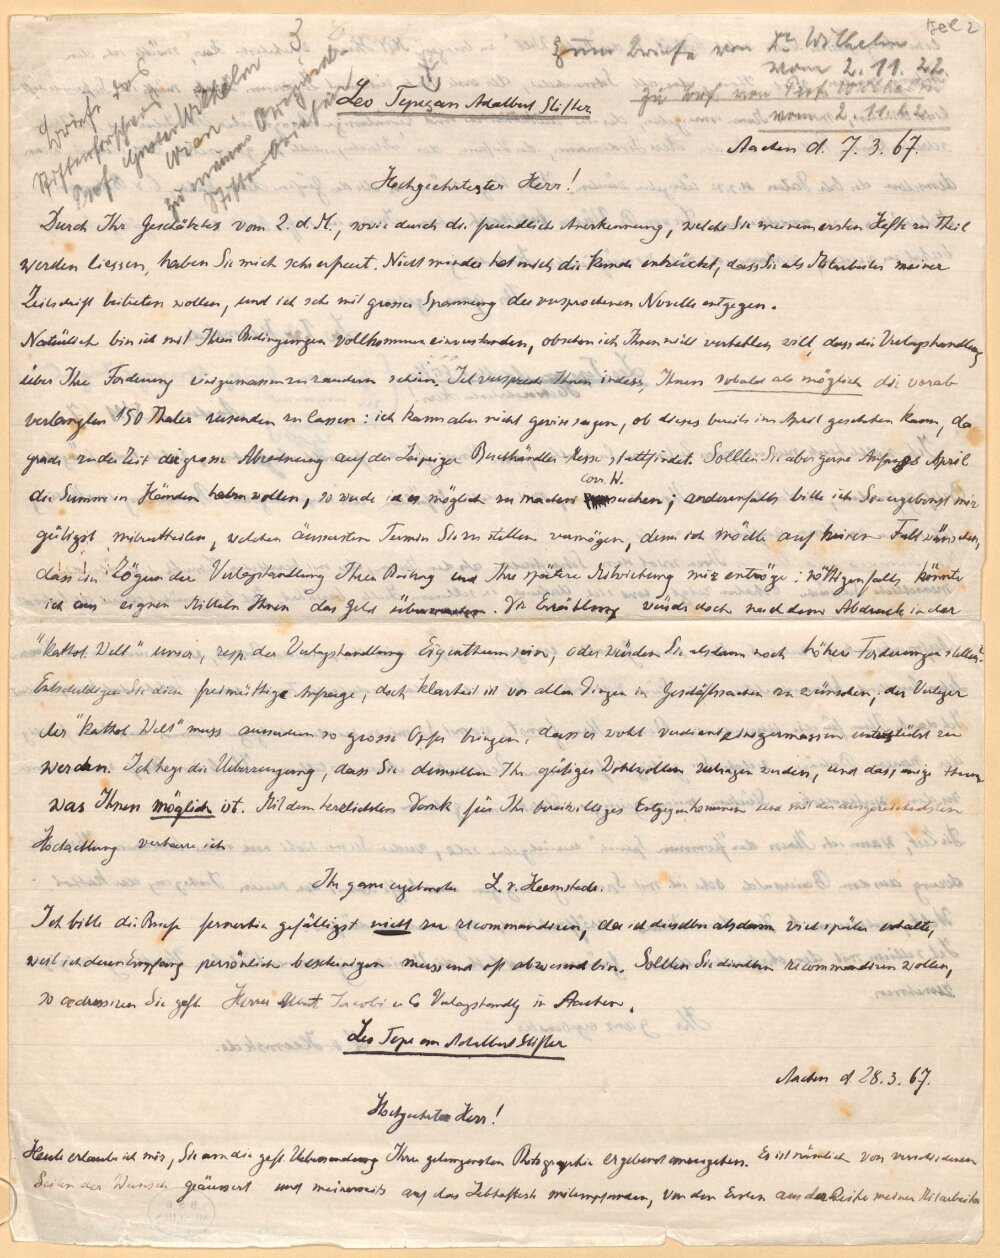 Beil 2
3
Briefe des
Stifterforschers
Prof. Gustav Wilhelm
Wien
zu meinen Original
Stifterbriefen
Zum Briefe von Dr Wilhelm
vom 2. 11. 22
zu Brf. von Prof. Wilhelm
vom 2. 11. 22
Leo Tepe an Adalbert Stifter
Aachen d. 7. 3. 67.
Hochgeehrtester Herr!
Durch Ihr Geschätztes vom 2. d. M., sowie durch die freundliche Anerkennung, welche Sie meinem ersten Hefte zu Theil
werden liessen, haben Sie mich sehr erfreut. Nicht minder hat mich die Kunde entzückt, dass Sie als Mitarbeiter meiner
Zeitschrift beitreten wollen, und ich sehe mit grosser Spannung der versprochenen Novelle entgegen.
Natürlich bin ich mit Ihren Bedingungen vollkommen einverstanden, obschon ich Ihnen nicht verhehlen will, dass die Verlagshandlung
über Ihre Forderung einigermassen zu zaudern schien. Ich verspreche Ihnen indess, Ihnen sobald als möglich die vorab
verlangten 150 Thaler zusenden zu lassen: ich kann aber nicht gewiss sagen, ob dieses bereits im April geschehen kann, da
grade zu der Zeit die grosse Abrechnung auf der Leipziger Buchhändler-Messe stattfindet. Sollten Sie aber gerne Anfangs April
corr. W.
die Summe in Händen haben wollen, so werde ich es möglich zu machen suchen; anderenfalls bitte ich Sie ergebenst mir
gütigst mitzutheilen, welchen äussersten Termin Sie zu stellen vermögen, denn ich möchte auf keinen Fall wünschen,
dass ein Zögern der Verlagshandlung Ihren Beitrag und Ihre spätere Mitwirkung mir entzöge; nöthigenfalls könnte
ich aus eignen Mitteln Ihnen das Geld übersenden. Die Erzählung würde doch nach dem Abdruck in der
"Kathol. Welt" unser, resp. der Verlagshandlung Eigenthum sein, oder würden Sie alsdann noch höhere Forderungen stellen?
Entschuldigen Sie diese freimüthige Anfrage, doch Klarheit ist vor allen Dingen in Geschäftssachen zu wünschen; der Verleger
der "Kathol. Welt" muss ausserdem so grosse Opfer bringen, dass er wohl verdient einigermassen unterstützt zu
werden. Ich hege die Ueberzeugung, dass Sie demselben Ihr gütiges Wohlwollen zutragen werden, und dass
was Ihnen möglich ist. Mit dem herzlichsten Dank für Ihr bereitwilliges Entgegenkommen und mit der ausgezeichnetsten
Hochachtung verharre ich
Ihr ganz ergebenster L. v. Heemstede.
Ich bitte die Briefe fernerhin gefälligst nicht zu recommandiren, da ich dieselben alsdann viel später erhalte,
weil ich deren Empfang persönlich bescheinigen muss und oft abwesend bin. Sollten Sie dieselben recommandiren wollen,
so adressiren Sie gefl. Herren Jacobi u Co Verlagshandlg in Aachen.
Leo Tepe an Adalbert Stifter
Aachen d. 28. 3. 67.
Hochgeehrter Herr!
Heute erlaube ich mir, Sie um die gefl. Uebersendung Ihrer gelungensten Photographie ergebenst anzugehen. Es ist nämlich von verschiedenen
Seiten der Wunsch geäussert und meinerseits auf das Lebhafteste mitempfunden, von den Ersten aus der Reihe meiner Mitarbeiter